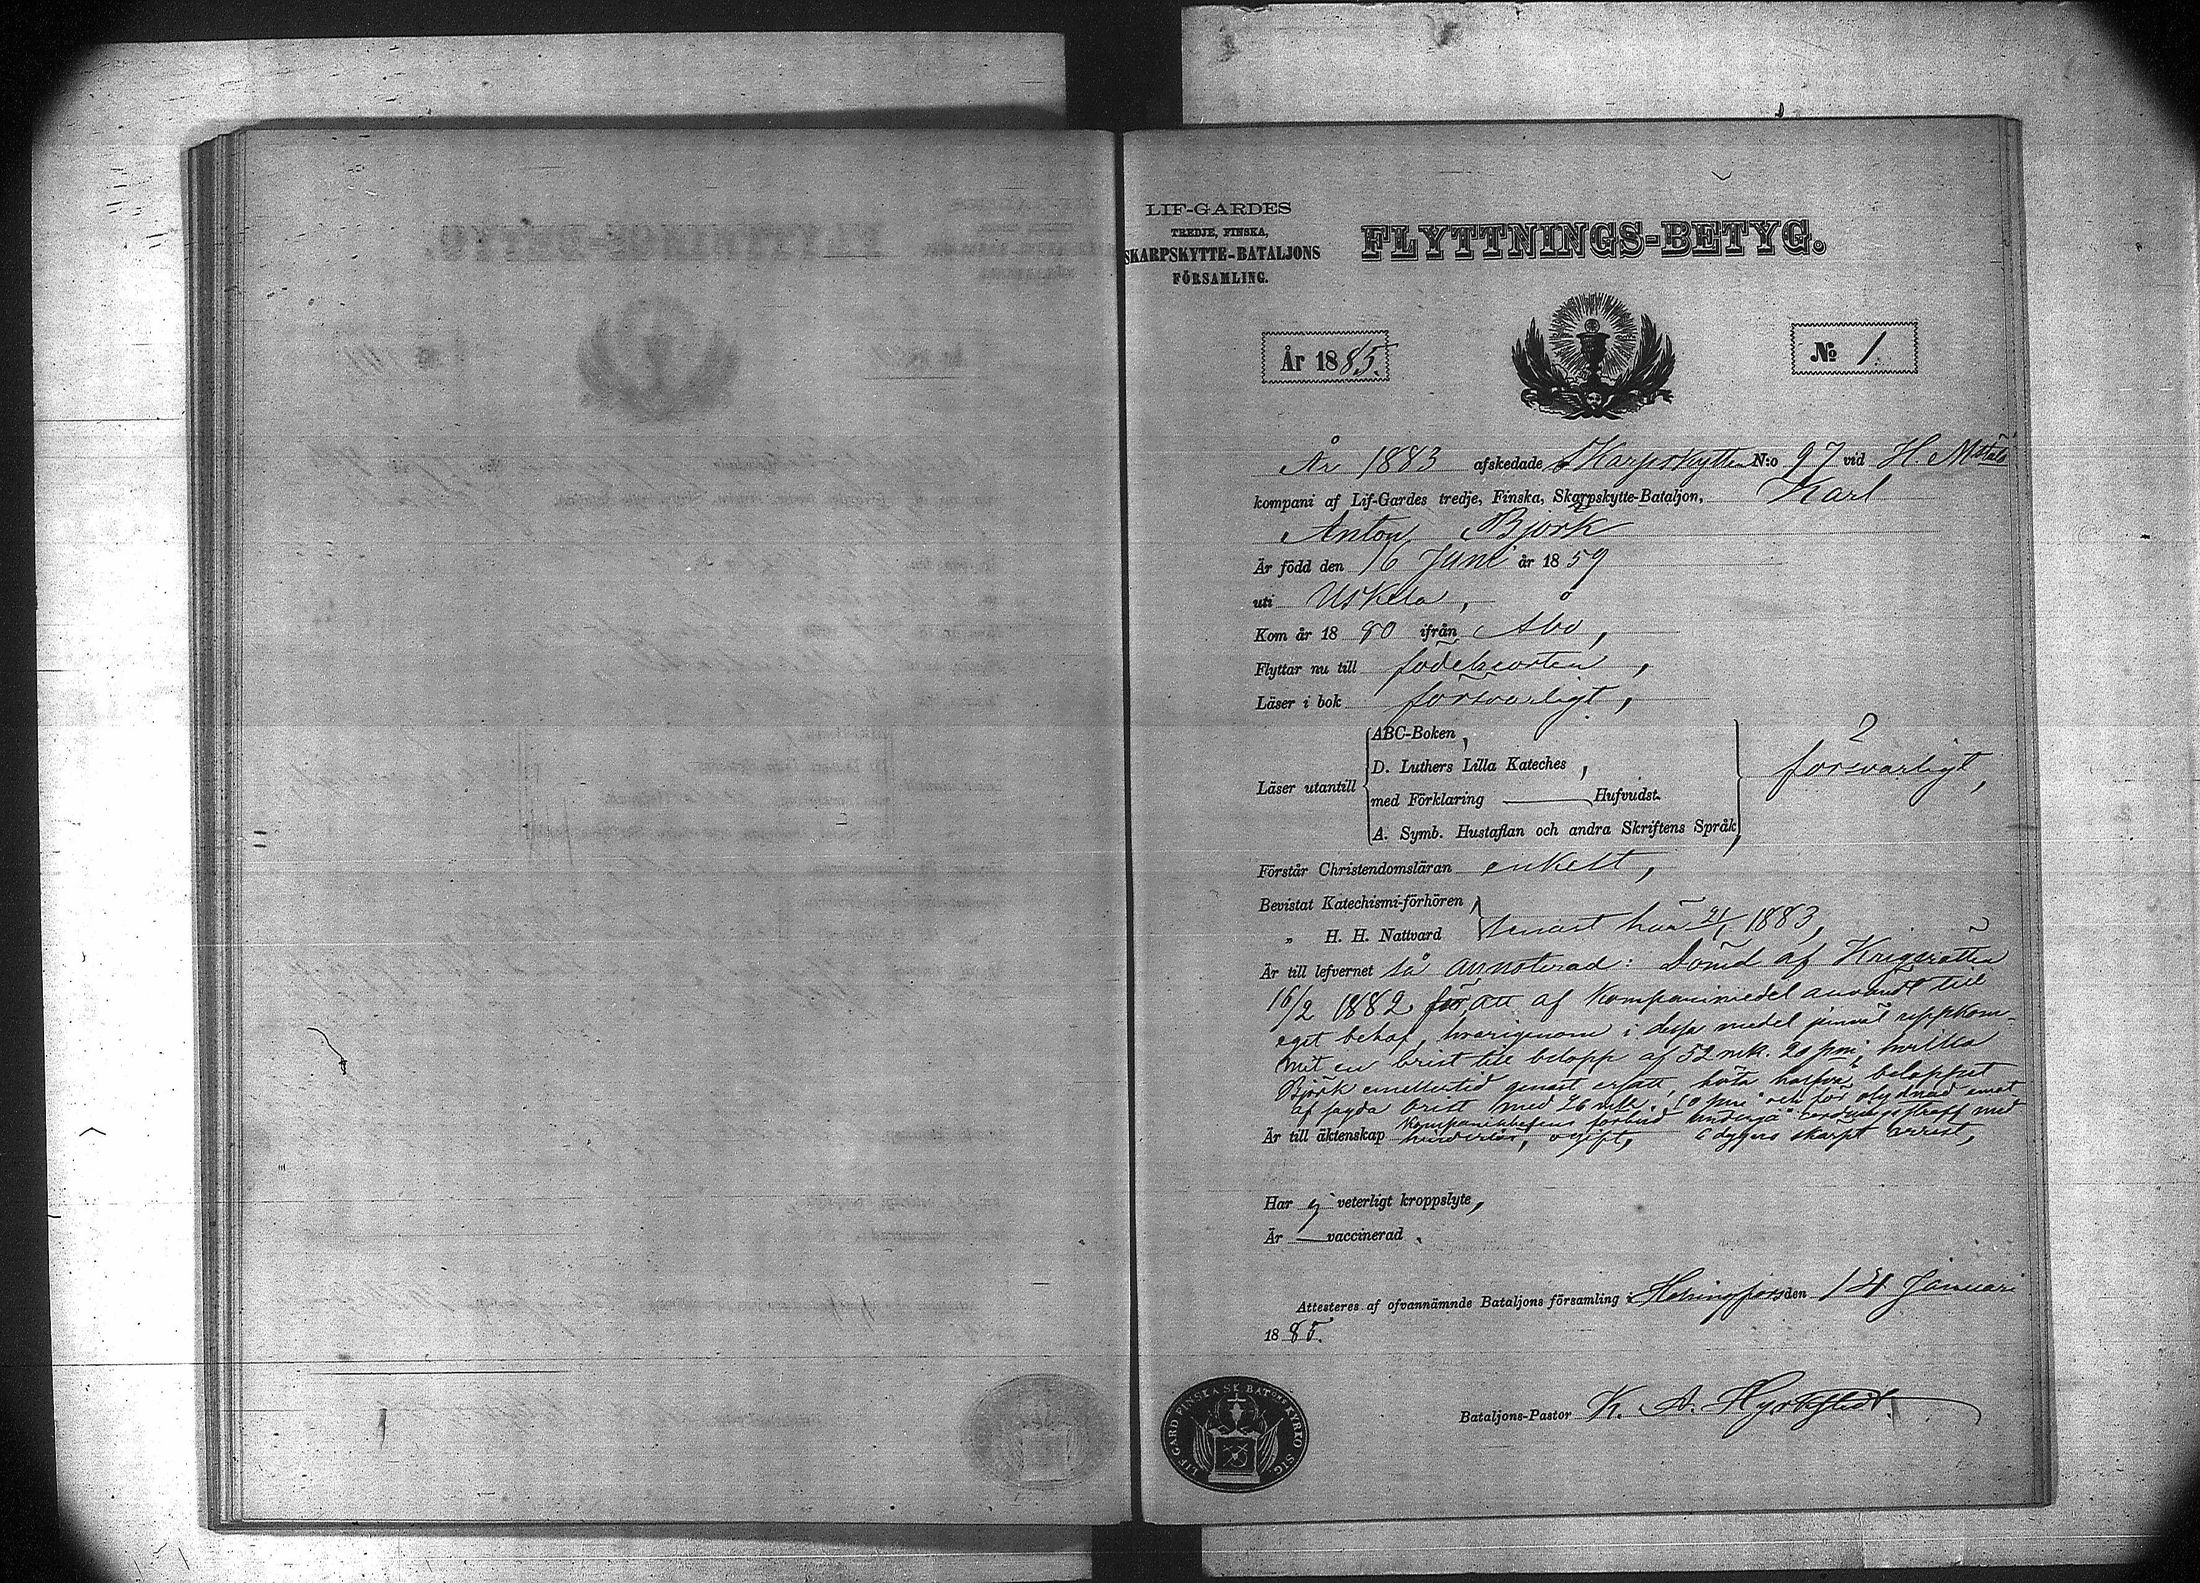 LIF-GARDES
TREDJE, FINSKA,
SKARPSKYTTE-BATALJONS
FÖRSAMLING.
FLYTTNINGS-BETYG.
År 1885.
№ 1.
År 1883 afskedade Skarpskytten N:o 97 vid H. M.
kompani af Lif-Gardes tredje, Finska, Skarpskytte-Bataljon, Karl
Anton Björk
Är född den 16 Juni år 1859
uti Uskela,
Kom år 1880 ifrån Åbo,
Flyttar nu till födelseorten,
Läser i bok försvarligt,
Läser utantill
ABC-Boken,
D. Luthers Lilla Kateches,
med Förklaring Hufvudst.
A. Symb. Hustaflan och andra Skriftens Språk,
försvarligt,
Förstår Christendomsläran enkelt,
Bevistat Katechismi-förhören,
" H. H. Nattvard senast här 1883,
Är till lefvernet så annoterad: Dömd af Krigsrätten
16/2 1882 för att af Kompanimedel användt till
eget behof, hvarigenom i dessa medel jemväl uppkom-
mit en brist till belopp af 52 mk. 20 pni, hvilka
Björk emellertid genast ersatt, böta halfva beloppet
af sagda brist med 26 mk. 10 pni och för olydnad emot
Kompanichefens förbud undergå ordningsstraff med
6 dygns skarpt arrest,
Är till äktenskap hinderlös, ogift,
Har ej veterligt kroppslyte,
Är vaccinerad.
Attesteres af ofvannämnde Bataljons församling i Helsingfors den Januari
1885.
Bataljons-Pastor K. A. Hyrkstedt.
LIF. GARD FINSKA SK. BAT:NS KYRKO SIG.